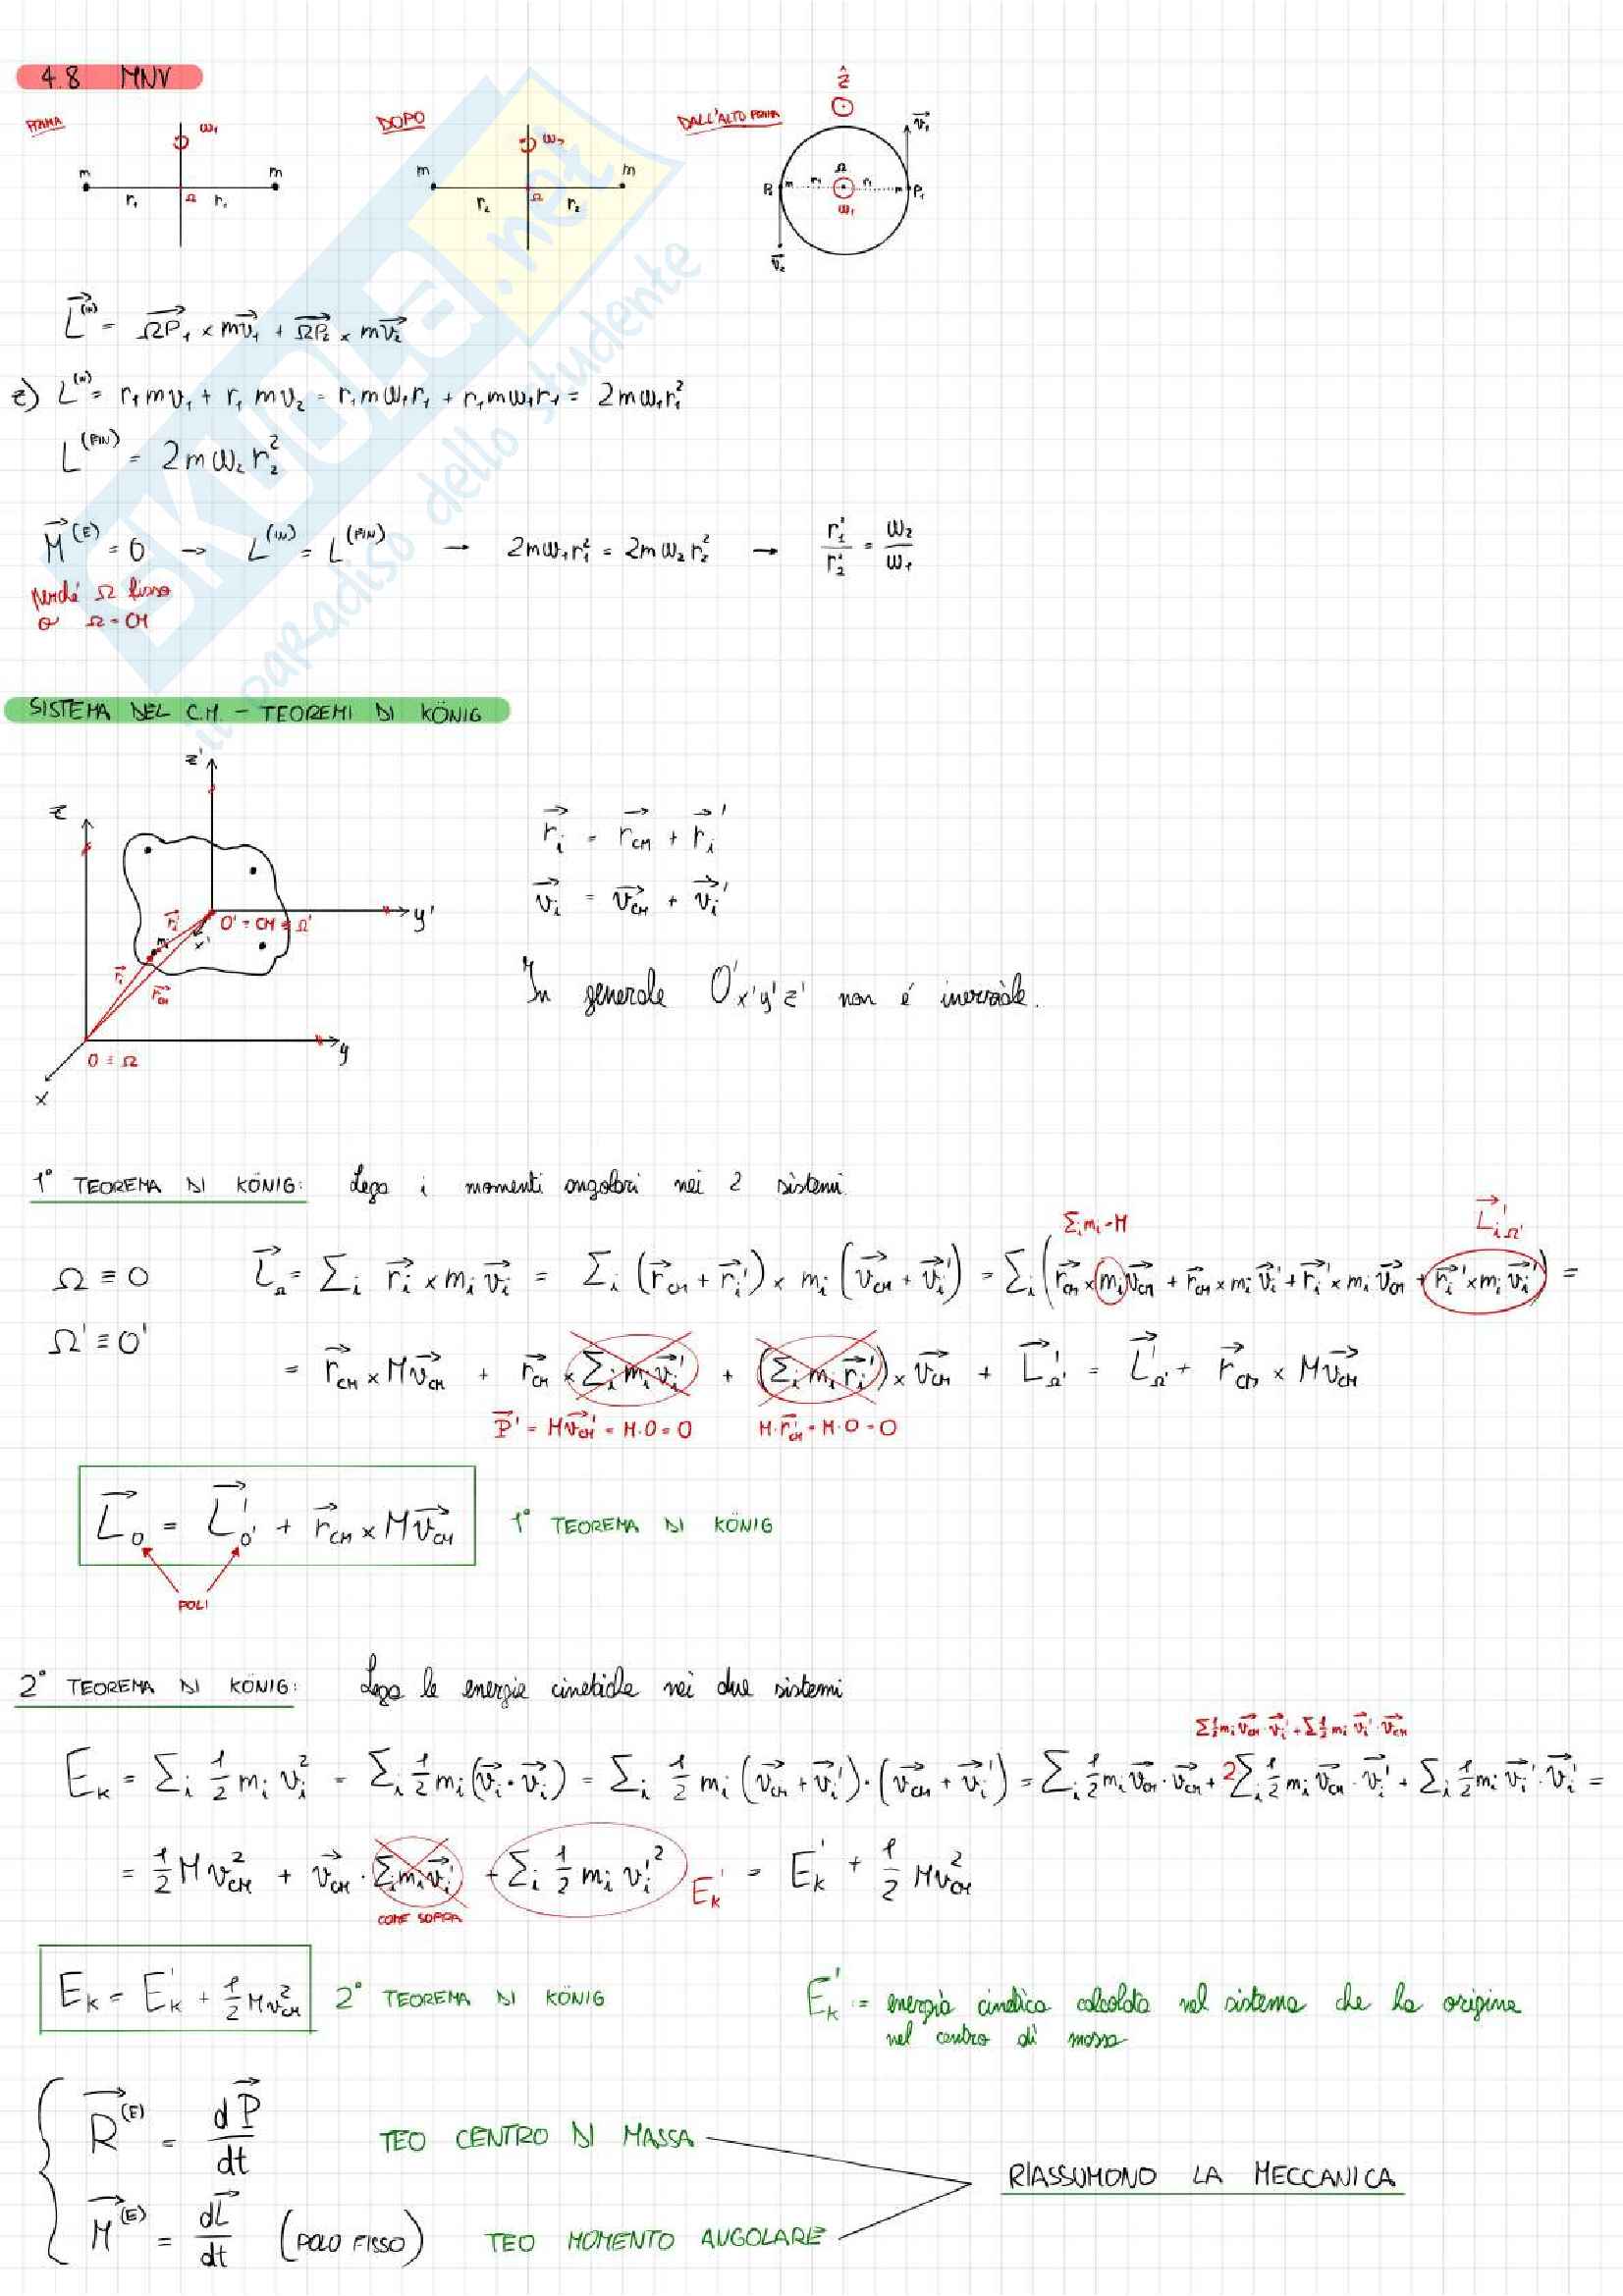 4.8 MNV
PRIMA ω₁ m m r₁ Ω r₁
DOPO ω₂ m m r₂ Ω r₂
DALL'ALTO PRIMA ẑ v₁ P₂ m r₁ Ω r₁ m P₁ ω₁ v₂
L⃗^(IN) = ΩP⃗₁ × mv⃗₁ + ΩP⃗₂ × mv⃗₂
z) L^(IN) = r₁mv₁ + r₁mv₂ = r₁mω₁r₁ + r₁mω₁r₁ = 2mω₁r₁²
L^(FIN) = 2mω₂r₂²
M⃗^(E) = 0 → L^(IN) = L^(FIN) → 2mω₁r₁² = 2mω₂r₂² → r₁²/r₂² = ω₂/ω₁
perché Ω fisso
o Ω = CM
SKUOLA.net
il paradiso dello studente
SISTEMA DEL C.M. – TEOREMI DI KÖNIG
z' z y' O' = CM ≡ Ω' x' r⃗ᵢ' mᵢ r⃗ᵢ r⃗_CM y O ≡ Ω x
r⃗ᵢ = r⃗_CM + r⃗ᵢ'
v⃗ᵢ = v⃗_CM + v⃗ᵢ'
In generale O'x'y'z' non é inerziale.
1° TEOREMA DI KÖNIG: Lega i momenti angolari nei 2 sistemi.
Σᵢmᵢ = M L⃗ᵢ'_Ω'
Ω ≡ O L⃗_Ω = Σᵢ r⃗ᵢ × mᵢv⃗ᵢ = Σᵢ (r⃗_CM + r⃗ᵢ') × mᵢ (v⃗_CM + v⃗ᵢ') = Σᵢ (r⃗_CM × mᵢv⃗_CM + r⃗_CM × mᵢv⃗ᵢ' + r⃗ᵢ' × mᵢv⃗_CM + r⃗ᵢ' × mᵢv⃗ᵢ') =
Ω' ≡ O'
= r⃗_CM × Mv⃗_CM + r⃗_CM × Σᵢmᵢv⃗ᵢ' + (Σᵢmᵢr⃗ᵢ') × v⃗_CM + L⃗'_Ω' = L⃗'_Ω' + r⃗_CM × Mv⃗_CM
P⃗' = Mv⃗_CM' = M·0 = 0 M·r⃗_CM' = M·0 = 0
L⃗_O = L⃗'_O' + r⃗_CM × Mv⃗_CM 1° TEOREMA DI KÖNIG
POLI
2° TEOREMA DI KÖNIG: Lega le energie cinetiche nei due sistemi
Σ½mᵢv⃗_CM·v⃗ᵢ' + Σ½mᵢv⃗ᵢ'·v⃗_CM
E_K = Σᵢ ½mᵢvᵢ² = Σᵢ ½mᵢ(v⃗ᵢ·v⃗ᵢ) = Σᵢ ½mᵢ (v⃗_CM + v⃗ᵢ')·(v⃗_CM + v⃗ᵢ') = Σᵢ ½mᵢv⃗_CM·v⃗_CM + 2Σᵢ ½mᵢv⃗_CM·v⃗ᵢ' + Σᵢ ½mᵢv⃗ᵢ'·v⃗ᵢ' =
= ½Mv²_CM + v⃗_CM·Σᵢmᵢv⃗ᵢ' + Σᵢ ½mᵢvᵢ'² E_K' = E_K' + ½Mv²_CM
COME SOPRA
E_K = E_K' + ½Mv²_CM 2° TEOREMA DI KÖNIG E_K' := energia cinetica calcolata nel sistema che ha origine
nel centro di massa
R⃗^(E) = dP⃗/dt TEO CENTRO DI MASSA
RIASSUMONO LA MECCANICA
M⃗^(E) = dL⃗/dt (POLO FISSO) TEO MOMENTO ANGOLARE